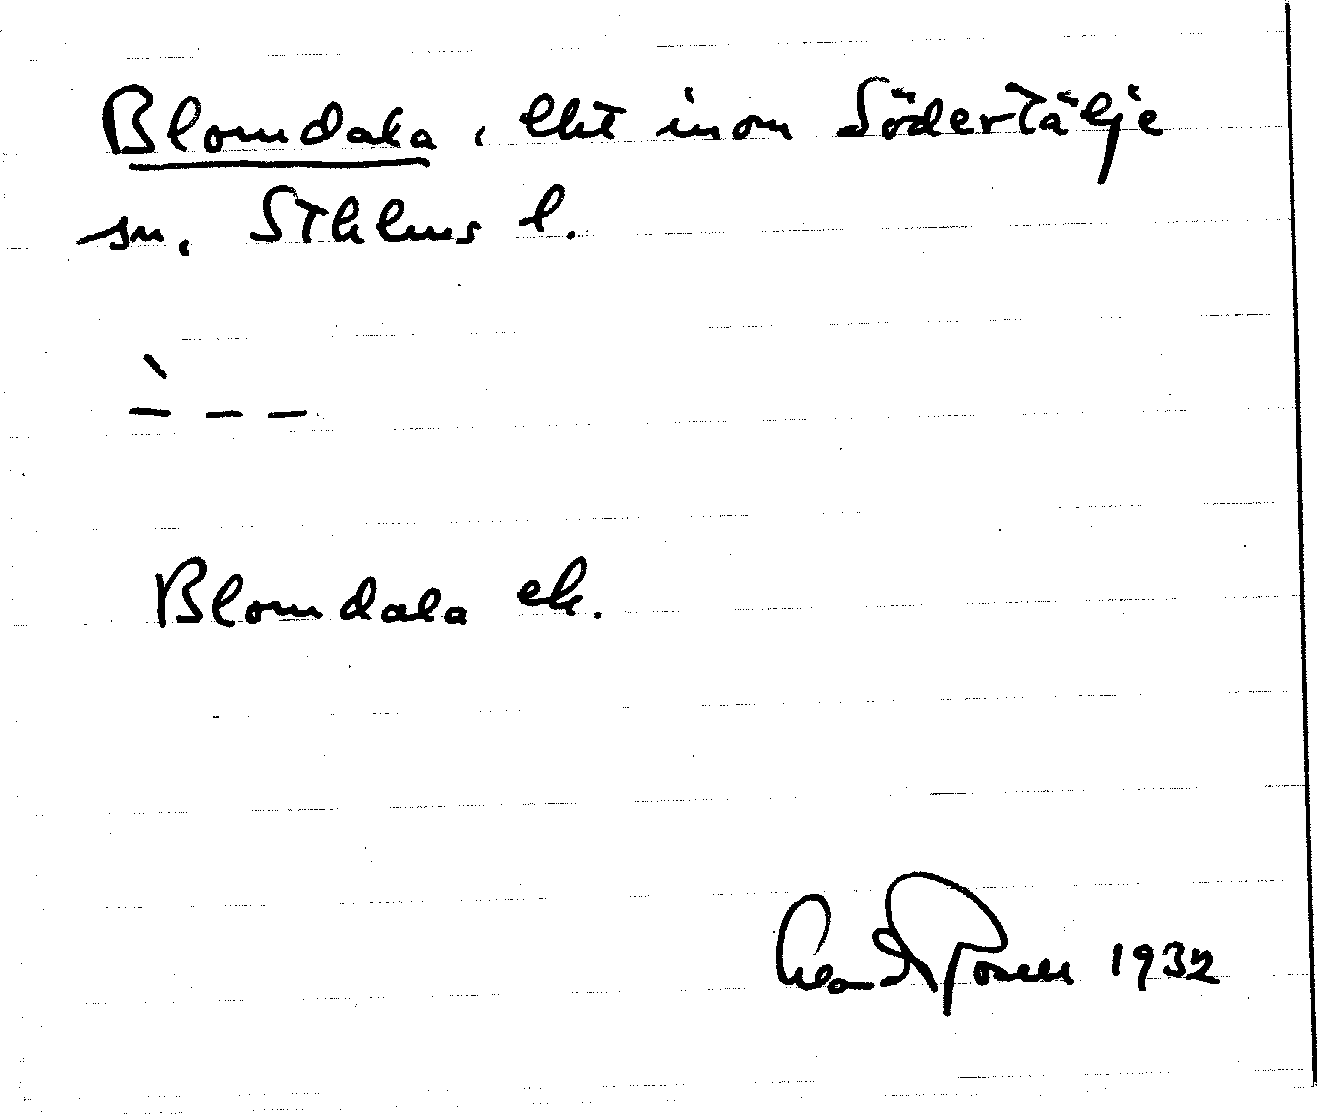 Blomdala, lht inom Södertälje
sn, Sthlms l.
– – –
Blomdala ek.
1932